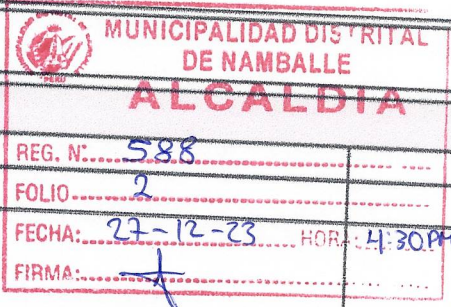 MUNICIPALIDAD DISTRITAL
DE NAMBALLE
ALCALDIA
REG. N°: 588
FOLIO 2
FECHA: 27-12-23 HORA: 4:30PM
FIRMA:
PERU